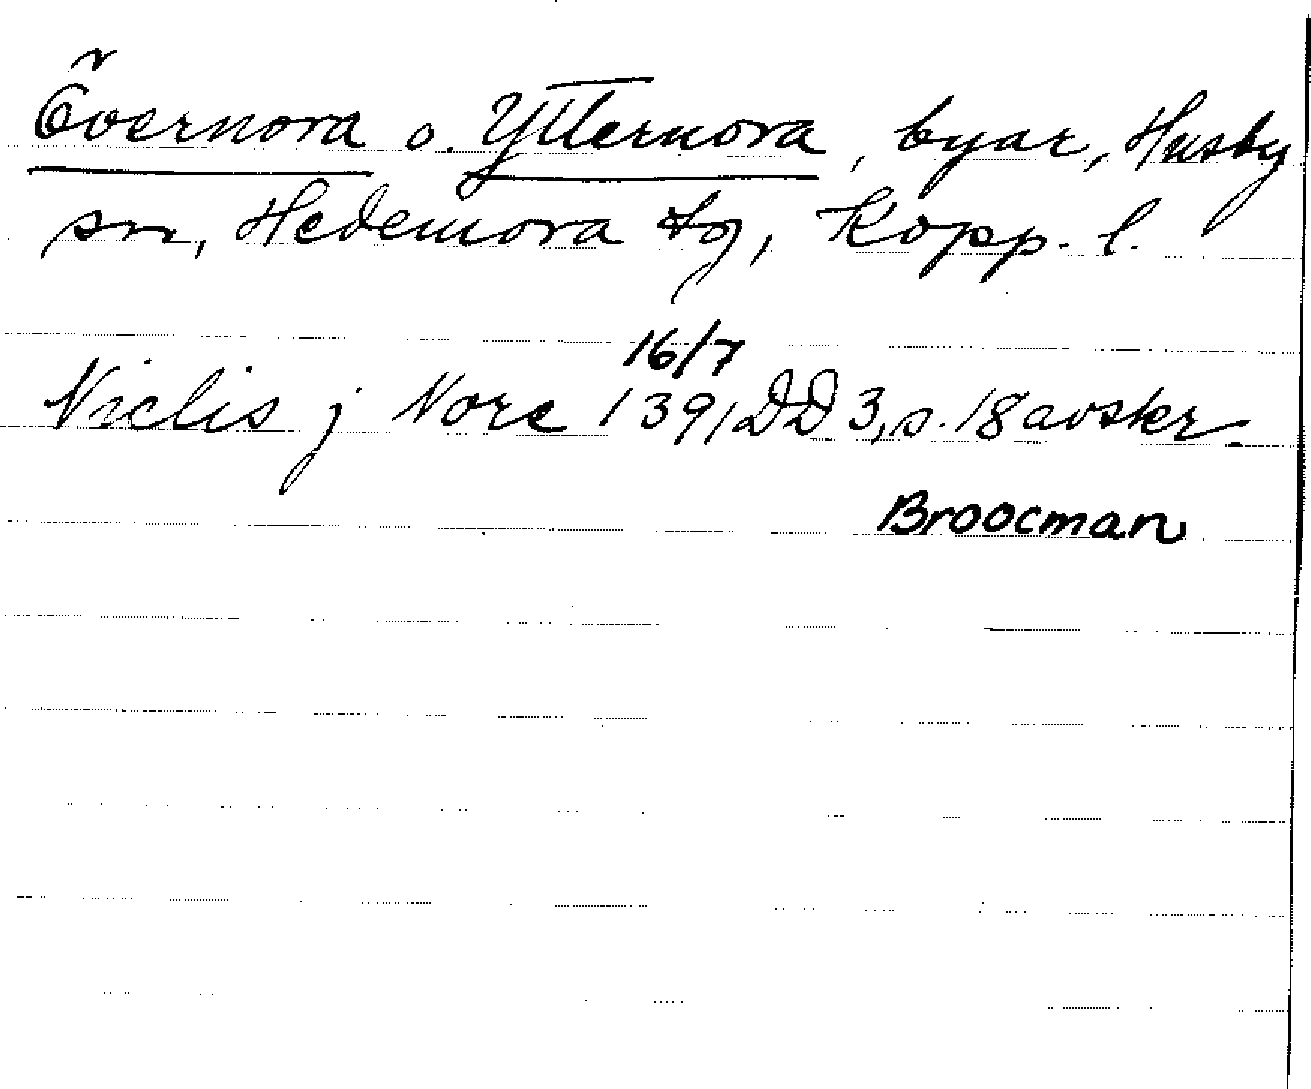 Övernora o. Ytternora, byar, Husby
sn, Hedemora tg, Kopp. l.
16/7
Niclis j Nore 1391 DD 3, s. 18 avskr.
Broocman